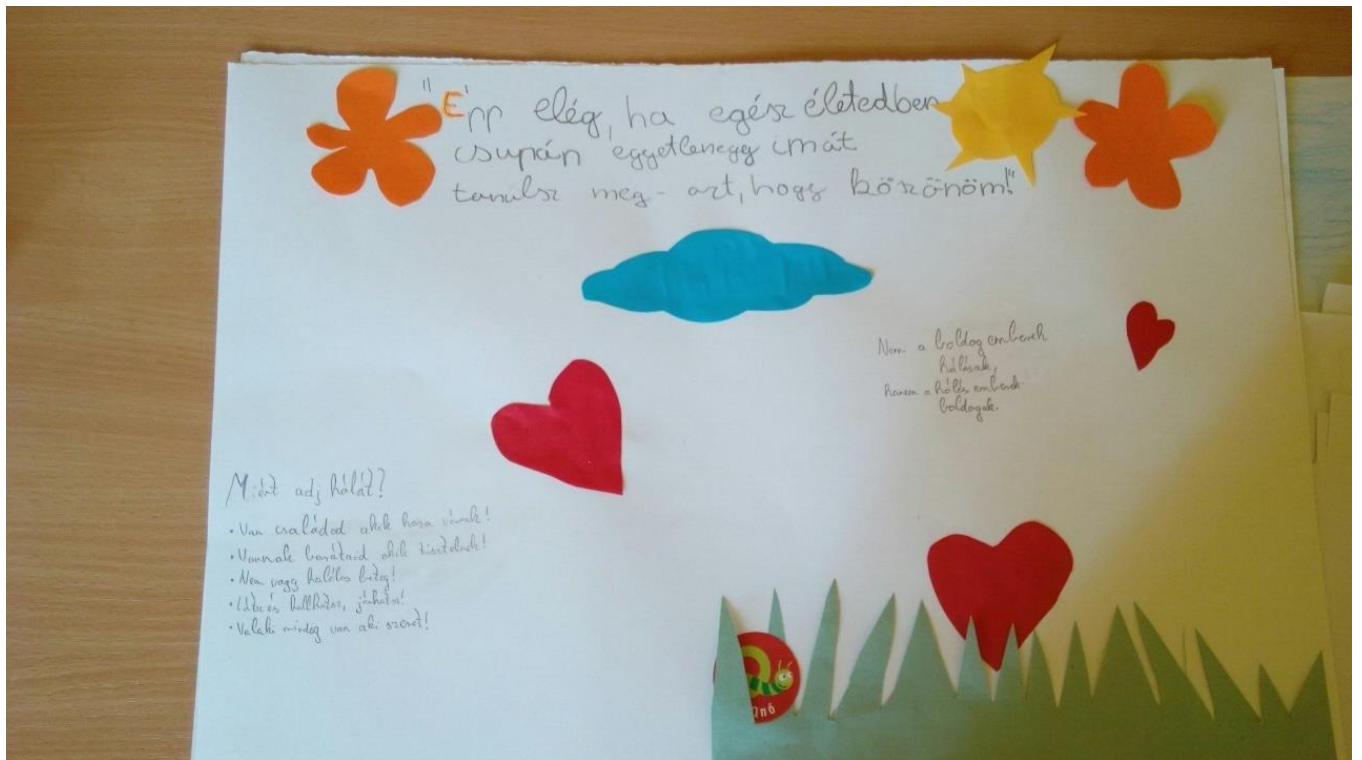 "Épp elég, ha egész életedben
csupán egyetlenegy imát
tanulsz meg - azt, hogy köszönöm!"
Nem a boldog emberek
hálásak,
hanem a hálás emberek
boldogok.
Miért adj hálát?
• Van családod akik haza várnak!
• Vannak barátaid akik tisztelnek!
• Nem vagy halálos beteg!
• Látsz és hallhatsz, járhatsz!
• Valaki mindig van aki szeret!